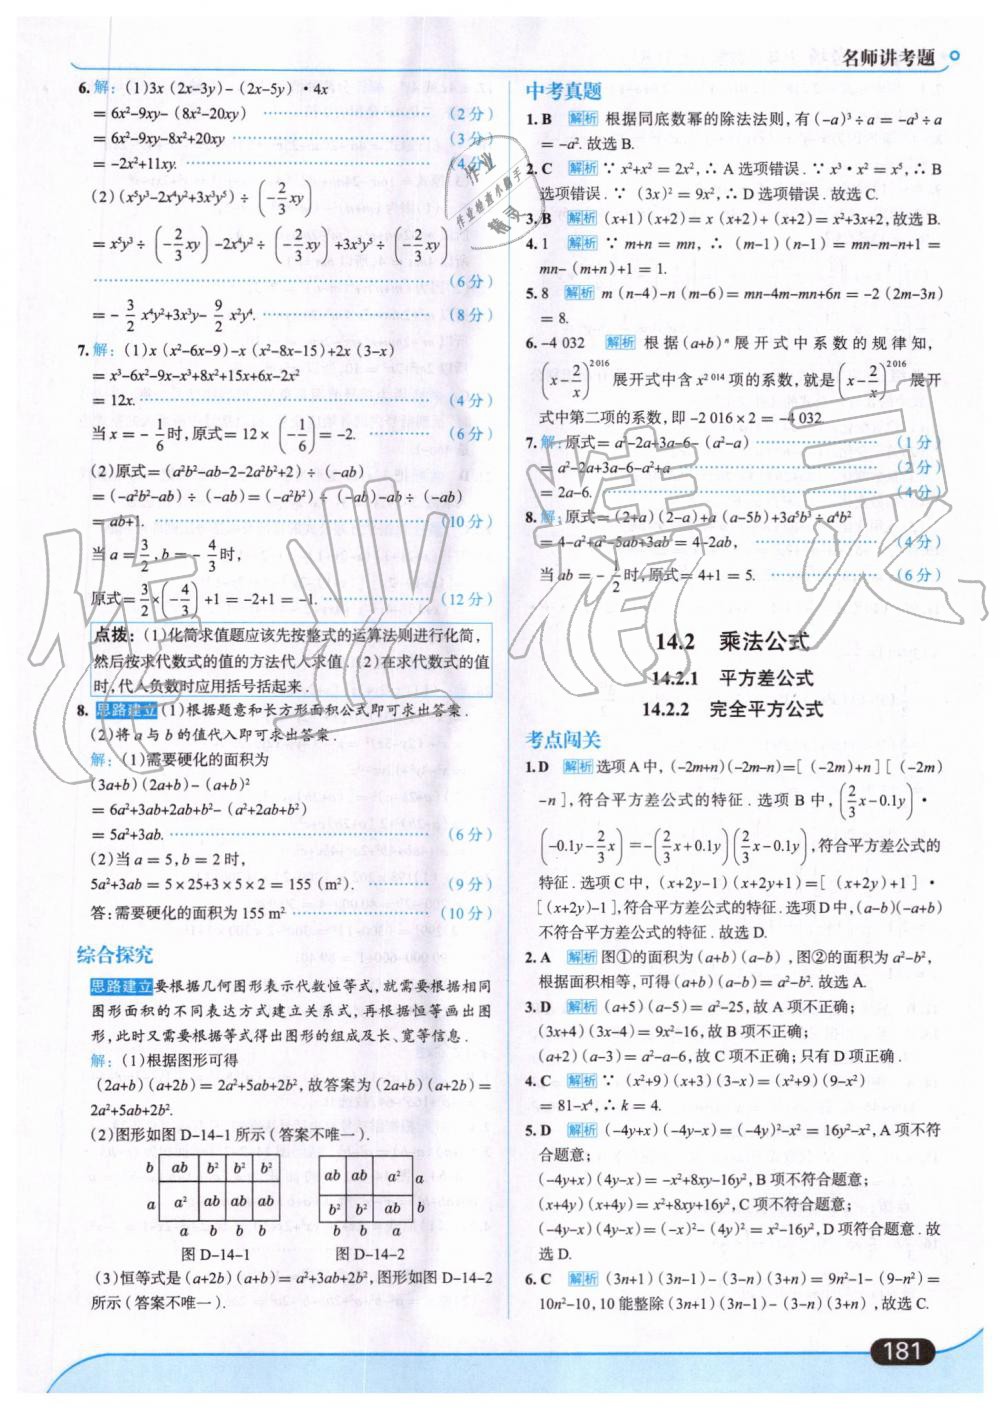 名师讲考题
6.解：(1)3x(2x-3y)-(2x-5y)·4x
=6x²-9xy-(8x²-20xy) (2分)
=6x²-9xy-8x²+20xy (3分)
=-2x²+11xy. (4分)
(2)(x⁵y³-2x⁴y²+3x³y⁵)÷(-2/3xy)
=x⁵y³÷(-2/3xy)-2x⁴y²÷(-2/3xy)+3x³y⁵÷(-2/3xy)
(6分)
=-3/2x⁴y²+3x³y-9/2x²y⁴. (8分)
7.解：(1)x(x²-6x-9)-x(x²-8x-15)+2x(3-x)
=x³-6x²-9x-x³+8x²+15x+6x-2x²
=12x. (4分)
当x=-1/6时,原式=12×(-1/6)=-2. (6分)
(2)原式=(a²b²-ab-2-2a²b²+2)÷(-ab)
=(-a²b²-ab)÷(-ab)=(-a²b²)÷(-ab)-ab÷(-ab)
=ab+1. (10分)
当a=3/2,b=-4/3时,
原式=3/2×(-4/3)+1=-2+1=-1. (12分)
点拨：(1)化简求值题应该先按整式的运算法则进行化简,
然后按求代数式的值的方法代入求值.(2)在求代数式的值
时,代入负数时应用括号括起来.
8.思路建立(1)根据题意和长方形面积公式即可求出答案.
(2)将a与b的值代入即可求出答案.
解：(1)需要硬化的面积为
(3a+b)(2a+b)-(a+b)²
=6a²+3ab+2ab+b²-(a²+2ab+b²)
=5a²+3ab. (6分)
(2)当a=5,b=2时,
5a²+3ab=5×25+3×5×2=155(m²). (9分)
答:需要硬化的面积为155 m² (10分)
综合探究
思路建立要根据几何图形表示代数恒等式,就需要根据相同
图形面积的不同表达方式建立关系式,再根据恒等画出图
形,此时又需要根据等式得出图形的组成及长、宽等信息.
解：(1)根据图形可得
(2a+b)(a+2b)=2a²+5ab+2b²,故答案为(2a+b)(a+2b)=
2a²+5ab+2b².
(2)图形如图D-14-1所示(答案不唯一).
b ab b² b² b²
a a² ab ab ab
a b b b
图D-14-1
ab ab a² a
b² b² ab b
b b a
图D-14-2
(3)恒等式是(a+2b)(a+b)=a²+3ab+2b²,图形如图D-14-2
所示(答案不唯一).
中考真题
1.B 解析 根据同底数幂的除法法则,有(-a)³÷a=-a³÷a
=-a².故选B.
2.C 解析 ∵x²+x²=2x²,∴A选项错误.∵x³·x²=x⁵,∴B
选项错误.∵(3x)²=9x²,∴D选项错误.故选C.
3.B 解析 (x+1)(x+2)=x(x+2)+(x+2)=x²+3x+2,故选B.
4.1 解析 ∵m+n=mn,∴(m-1)(n-1)=mn-m-n+1=
mn-(m+n)+1=1.
5.8 解析 m(n-4)-n(m-6)=mn-4m-mn+6n=-2(2m-3n)
=8.
6.-4 032 解析 根据(a+b)ⁿ展开式中系数的规律知,
(x-2/x)²⁰¹⁶展开式中含x²⁰¹⁴项的系数,就是(x-2/x)²⁰¹⁶展开
式中第二项的系数,即-2 016×2=-4 032.
7.解:原式=a²-2a+3a-6-(a²-a) (1分)
=a²-2a+3a-6-a²+a (2分)
=2a-6. (4分)
8.解:原式=(2+a)(2-a)+a(a-5b)+3a⁵b³÷a⁴b²
=4-a²+a²-5ab+3ab=4-2ab, (4分)
当ab=-1/2时,原式=4+1=5. (6分)
14.2 乘法公式
14.2.1 平方差公式
14.2.2 完全平方公式
考点闯关
1.D 解析 选项A中,(-2m+n)(-2m-n)=[(-2m)+n][(-2m)
-n],符合平方差公式的特征.选项B中,(2/3x-0.1y)·
(-0.1y-2/3x)=-(2/3x+0.1y)(2/3x-0.1y),符合平方差公式的
特征.选项C中,(x+2y-1)(x+2y+1)=[(x+2y)+1]·
[(x+2y)-1],符合平方差公式的特征.选项D中,(a-b)(-a+b)
不符合平方差公式的特征.故选D.
2.A 解析 图①的面积为(a+b)(a-b),图②的面积为a²-b²,
根据面积相等,可得(a+b)(a-b)=a²-b².故选A.
3.D 解析 (a+5)(a-5)=a²-25,故A项不正确;
(3x+4)(3x-4)=9x²-16,故B项不正确;
(a+2)(a-3)=a²-a-6,故C项不正确;只有D项正确.
4.C 解析 ∵(x²+9)(x+3)(3-x)=(x²+9)(9-x²)
=81-x⁴,∴k=4.
5.D 解析 (-4y+x)(-4y-x)=(-4y)²-x²=16y²-x²,A项不符
合题意;
(-4y+x)(4y-x)=-x²+8xy-16y²,B项不符合题意;
(x+4y)(x+4y)=x²+8xy+16y²,C项不符合题意;
(-4y-x)(4y-x)=(-x)²-(4y)²=x²-16y²,D项符合题意.故
选D.
6.C 解析 (3n+1)(3n-1)-(3-n)(3+n)=9n²-1-(9-n²)=
10n²-10,10能整除(3n+1)(3n-1)-(3-n)(3+n),故选C.
181
作业精灵